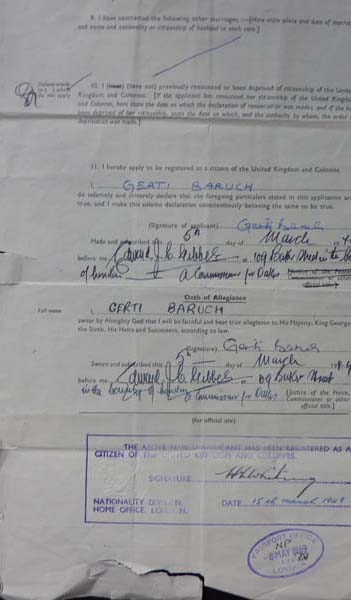 9. I have contracted the following other marriages:—[Here state place and date of marriage
and name and nationality or citizenship of husband in each case.]
Delete words
in ( ) which
do not apply
10. I (have) (have not) previously renounced or been deprived of citizenship of the United
Kingdom and Colonies. [If the applicant has renounced her citizenship of the United Kingdom
and Colonies, here state the date on which the declaration of renunciation was made; and if she has
been deprived of her citizenship, state the date on which, and the authority by whom, the order
deprivation was made.]
11. I hereby apply to be registered as a citizen of the United Kingdom and Colonies.
I, GERTI BARUCH
do solemnly and sincerely declare that the foregoing particulars stated in this application are
true, and I make this solemn declaration conscientiously believing the same to be true.
(Signature of applicant) Gerti Baruch
Made and subscribed this 5th day of March 194
before me, Edward J. C. Gibbes of 109 Baker Street in the
of London a Commissioner for Oaths [Justice of the Peace,
official title.]
Oath of Allegiance
Full name
I, GERTI BARUCH
swear by Almighty God that I will be faithful and bear true allegiance to His Majesty, King George
the Sixth, His Heirs and Successors, according to law.
(Signature) Gerti Baruch
Sworn and subscribed this 5th day of March 194
before me, Edward J. C. Gibbes of 109 Baker Street
in the of London a Commissioner for Oaths [Justice of the Peace,
Commissioner or other
official title.]
(for official use)
THE ABOVE NAMED APPLICANT HAS BEEN REGISTERED AS A
CITIZEN OF THE UNITED KINGDOM AND COLONIES.
SIGNATURE
NATIONALITY DIVISION,
HOME OFFICE, LONDON.
DATE 15th March 1949
PASSPORT OFFICE
8 MAY 1949
LONDON